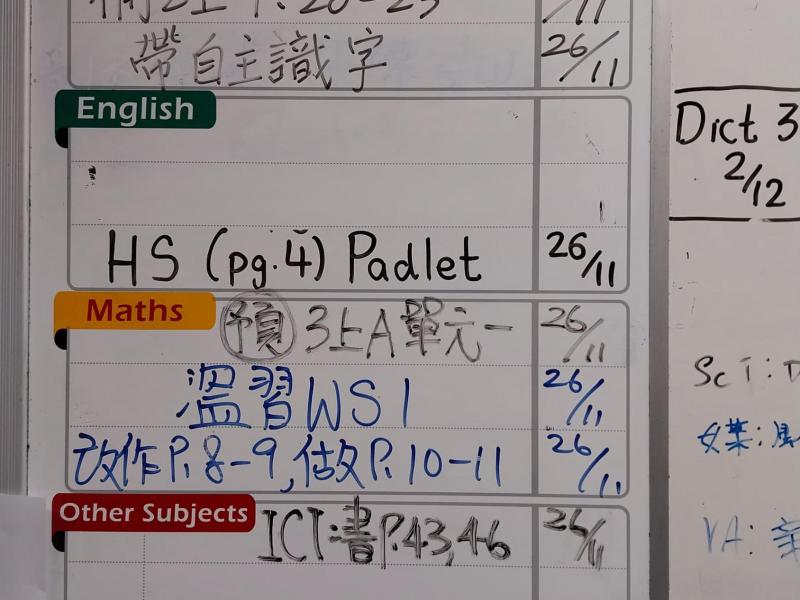 補 P. 20-23 /11
帶自主識字 26/11
English
HS (pg.4) Padlet 26/11
Maths
預 3上A單元一 26/11
溫習WS1 26/11
改作P.8-9,做P.10-11 26/11
Other Subjects
ICT:書P.43,46 26/11
Dict 3
2/12
Sci:
VA: